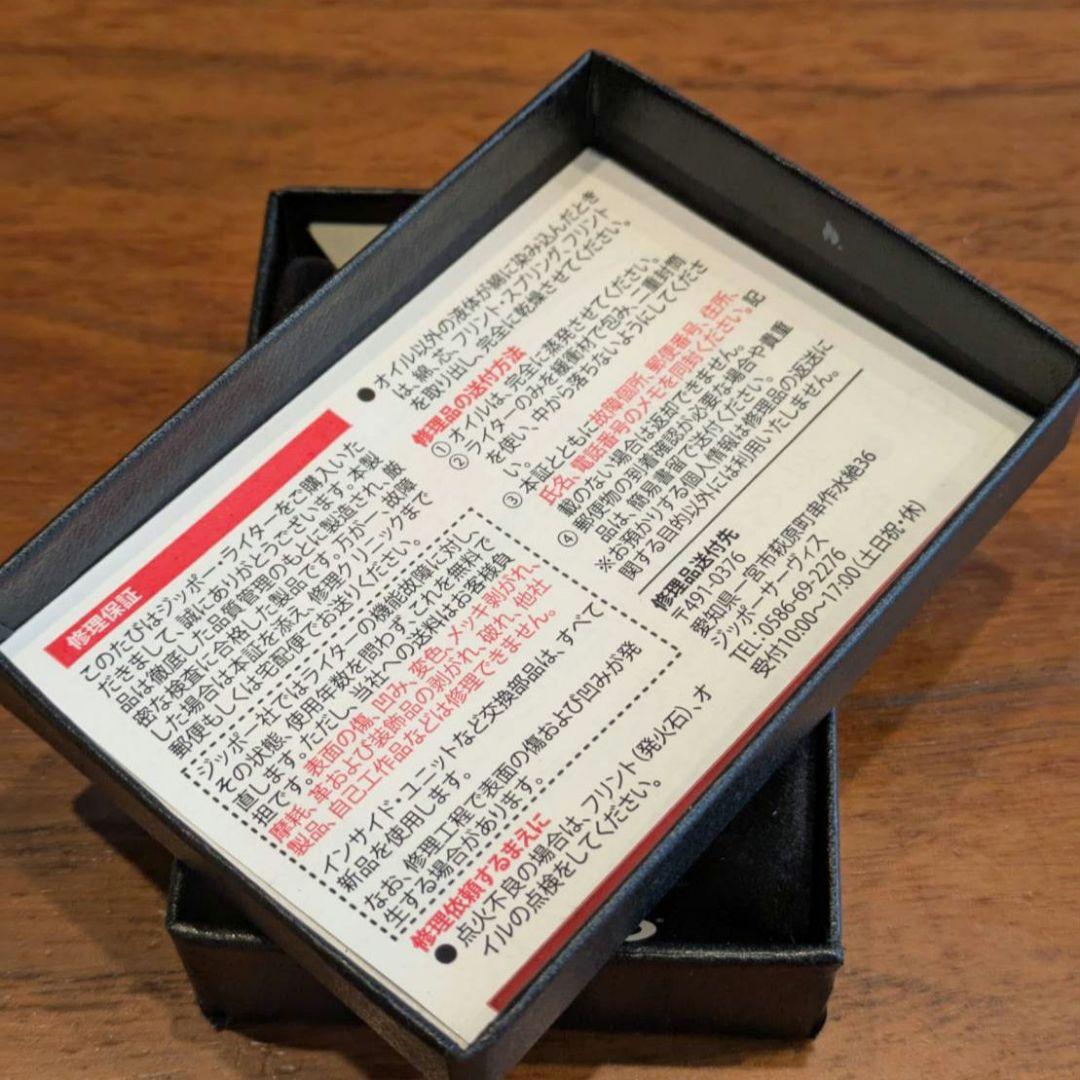 修理保証
このたびはジッポーライターをご購入いた
だきまして、誠にありがとうございます。本製
品は徹底した品質管理のもとに製造され、厳
密な検査に合格した製品です。万が一、故障
した場合は本証を添え、修理クリニックまで
郵便もしくは宅配便でお送りください。
ジッポー社ではライターの機能故障に対し、
その状態、使用年数を問わず、これを無料で
直します。ただし、当社への送料はお客様負
担です。表面の傷、凹み、変色、メッキ剥がれ、
摩耗、革および装飾品の剥がれ、破れ、他社
製品、自己工作品などは修理できません。
インサイド・ユニットなど交換部品は、すべて
新品を使用します。
なお、修理工程で表面の傷および凹みが発
生する場合があります。
修理依頼するまえに
●点火不良の場合は、フリント(発火石)、オ
イルの点検をしてください。
●オイル以外の液体が綿に染み込んだとき
は、綿、芯、フリント・スプリング、フリント
を取り出し、完全に乾燥させてください。
修理品の送付方法
①オイルは、完全に蒸発させてください。
②ライターのみを緩衝材で包み、二重封筒
を使い、中から落ちないようにしてくださ
い。
③本証とともに故障個所、郵便番号、住所、
氏名、電話番号のメモを同封ください。記
載のない場合は返却できません。
④郵便物の到着確認が必要な場合や貴重
品は、簡易書留で送付ください。
※お預かりする個人情報は修理品の返送に
関する目的以外には利用いたしません。
修理品送付先
〒491-0376
愛知県一宮市萩原町串作水絶36
ジッポーサーヴィス
TEL:0586-69-2276
受付10:00〜17:00(土日祝・休)